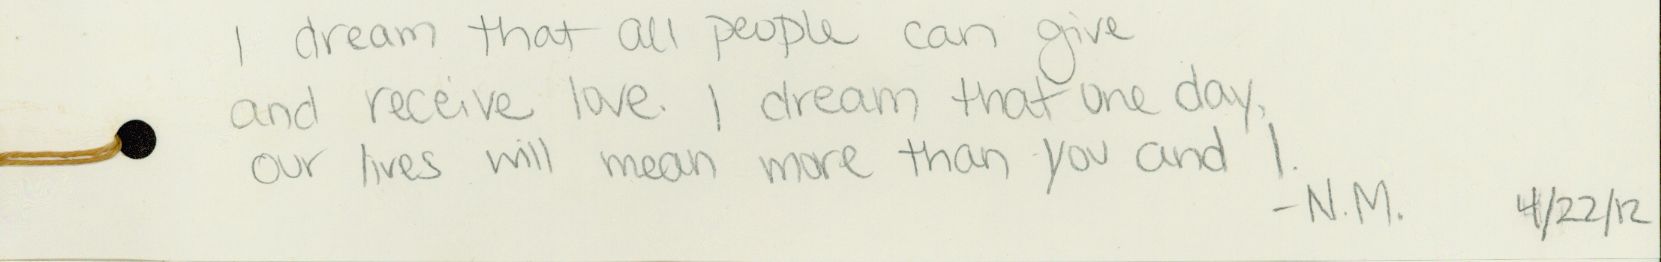 I dream that all people can give
and receive love. I dream that one day,
our lives will mean more than you and I.
-N.M. 4/22/12